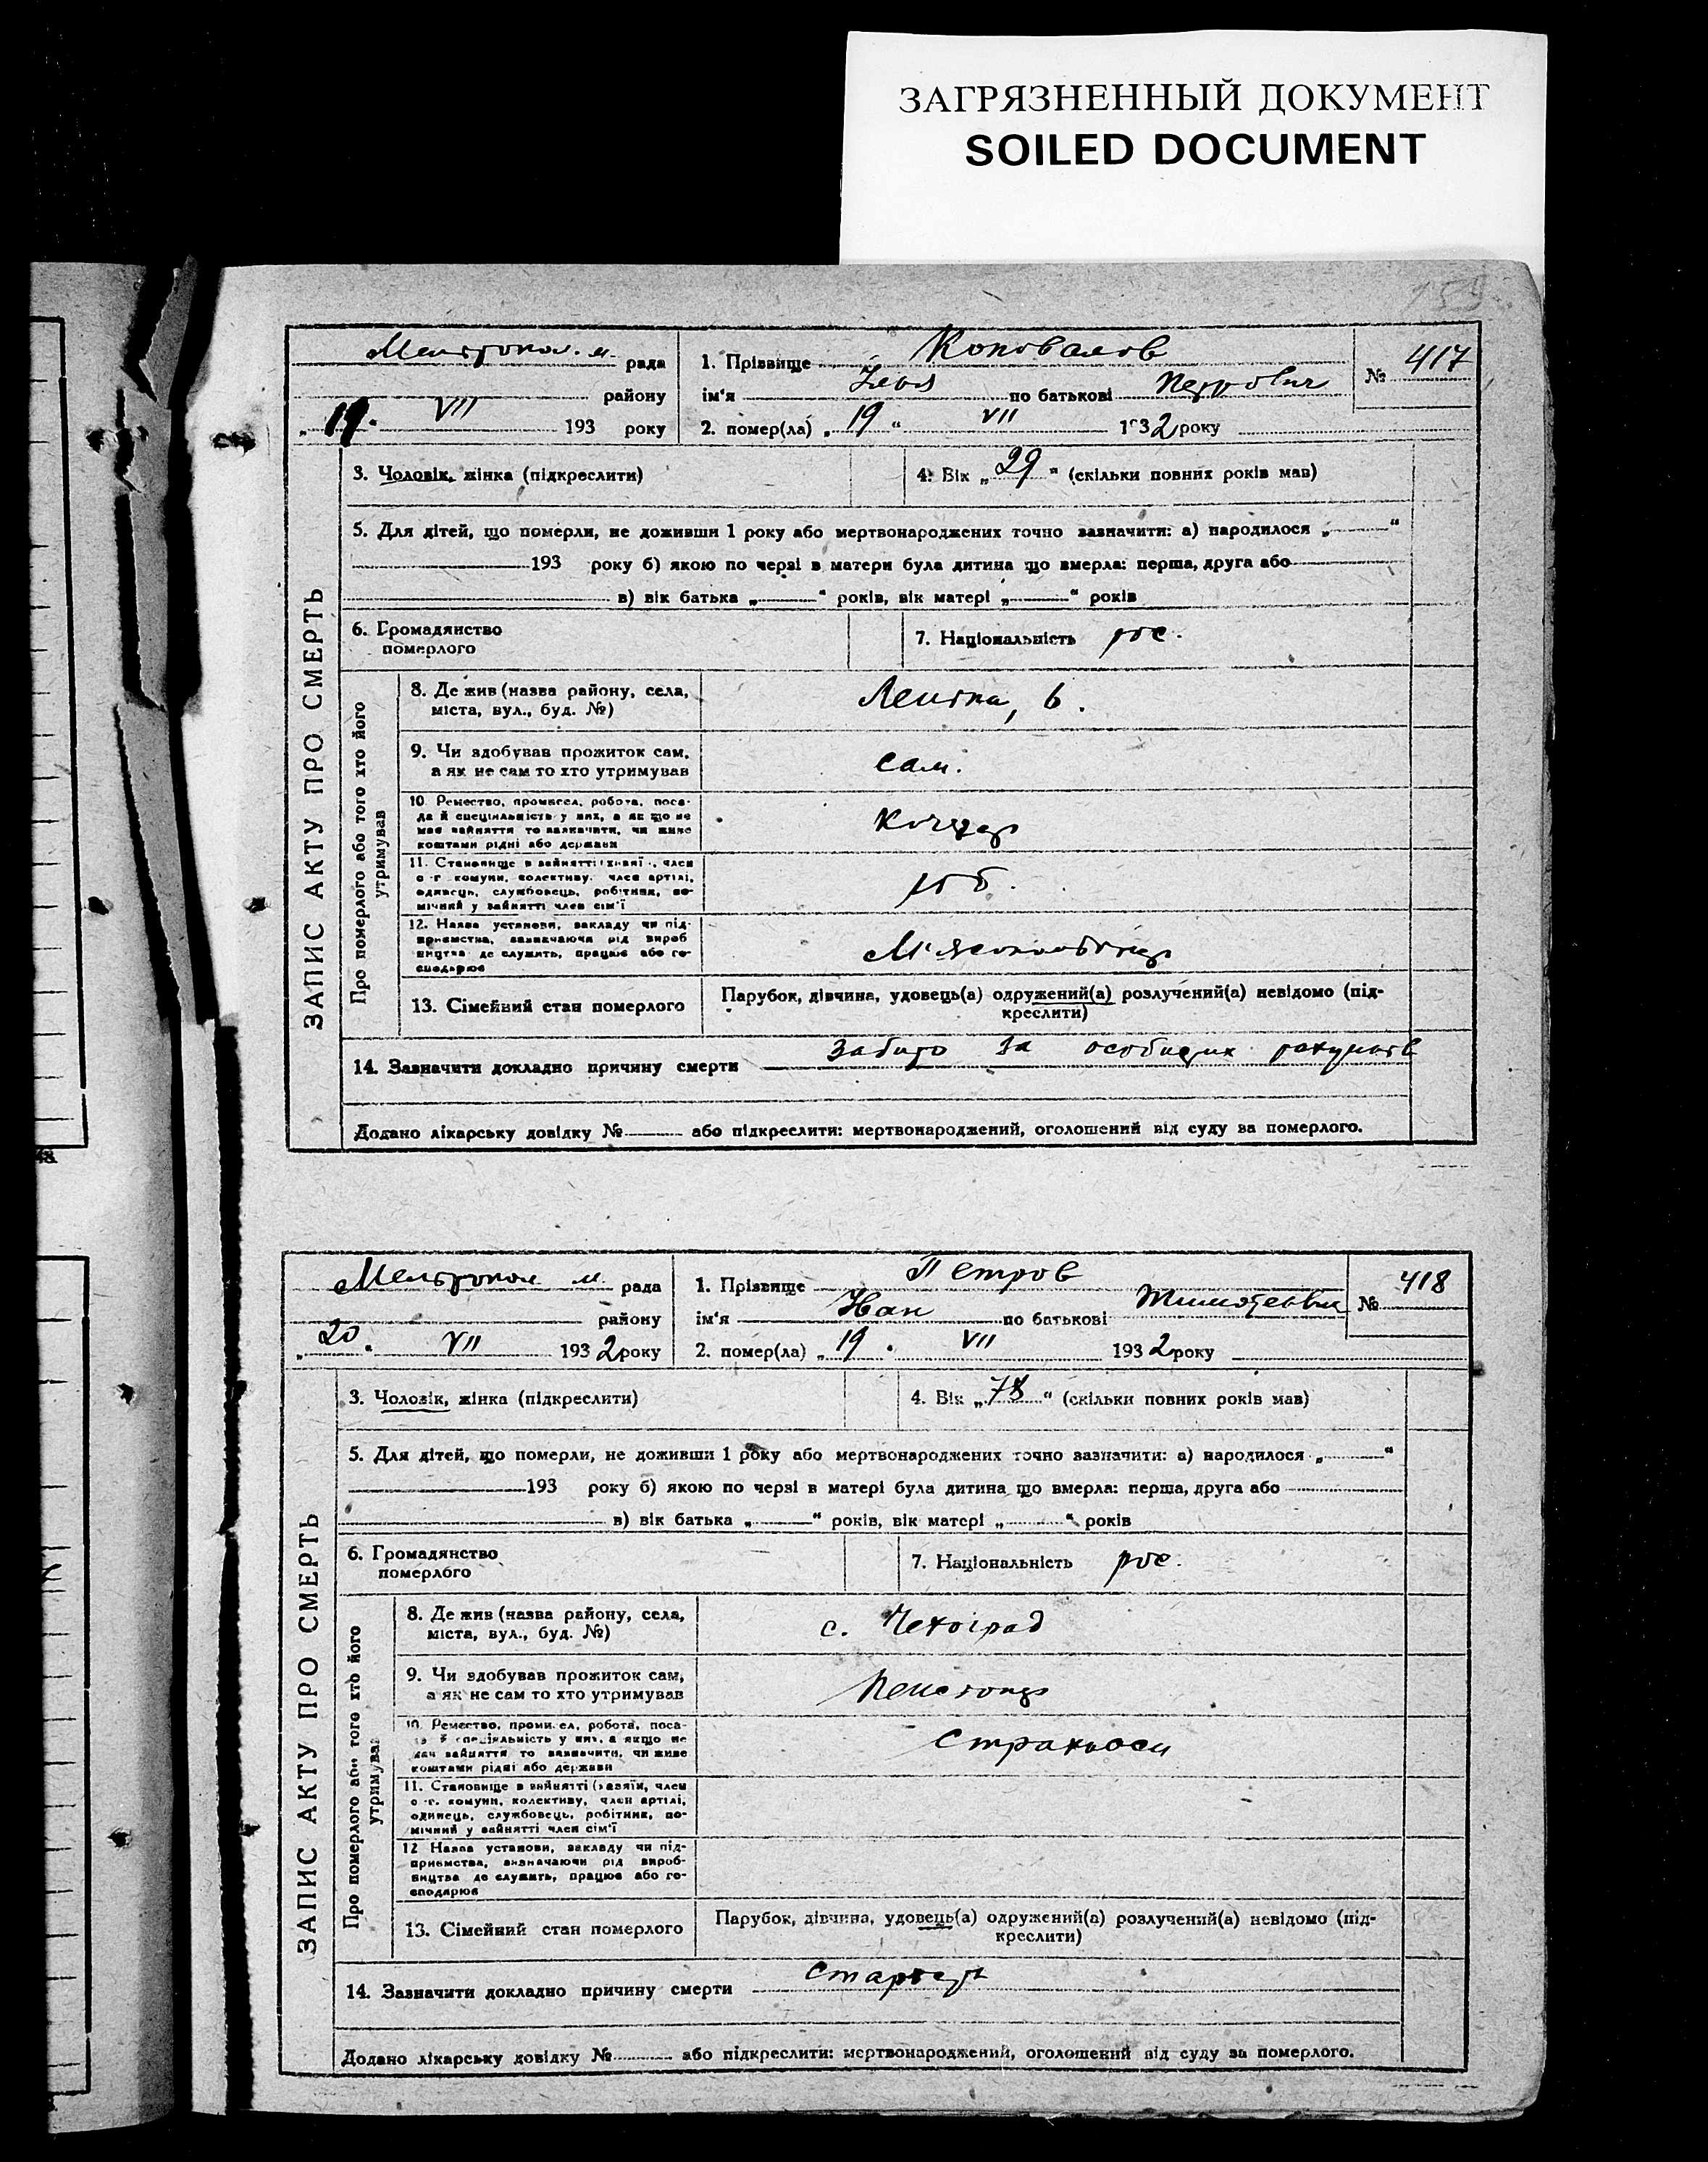 ЗАГРЯЗНЕННЫЙ ДОКУМЕНТ
SOILED DOCUMENT
ЗАПИС АКТУ ПРО СМЕРТЬ
рада
району
„ 19 . VII 193 року
1. Прізвище Коновалов
№ 417
ім'я по батькові Петрович
2. помер(ла) „ 19 “ VII 1932 року
3. Чоловік, жінка (підкреслити)
4. Вік „ 29 “ (скільки повних років мав)
5. Для дітей, що померли, не доживши 1 року або мертвонароджених точно зазначити: а) народилося „ “
193 року б) якою по черзі в матери була дитина що вмерла: перша, друга або
в) вік батька „ “ років, вік матері „ “ років
6. Громадянство
померлого
7. Національність рос.
Про померлого або того хто його
утримував
8. Де жив (назва району, села,
міста, вул., буд. №)
Леніна, 6.
9. Чи здобував прожиток сам,
а як не сам то хто утримував
сам.
10. Ремество, промисел, робота, поса-
да й спеціяльність у них, а як що не
мав зайняття то зазначити, чи живе
коштами рідні або держави
Кочегар
11. Становище в зайнятті (хазяїн, член
с.-г. комуни, колективу, член артілі,
одинець, службовець, робітник, по-
мічний у зайнятті член сім'ї
роб.
12. Назва установи, закладу чи під-
приємства, зазначаючи рід вироб
ництва де служить, працює або го-
сподарює
13. Сімейний стан померлого
Парубок, дівчина, удовець(а) одружений(а) розлучений(а) невідомо (під-
креслити)
14. Зазначити докладно причину смерти Забито за особистих рахунків
Додано лікарську довідку № або підкреслити: мертвонароджений, оголошений від суду за померлого.
ЗАПИС АКТУ ПРО СМЕРТЬ
Мелітополь м. рада
району
„ 20 . VII 1932 року
1. Прізвище Петров
№ 418
ім'я Іван по батькові Тимофеевич
2. помер(ла) „ 19 . VII 1932 року
3. Чоловік, жінка (підкреслити)
4. Вік „ 78 “ (скільки повних років мав)
5. Для дітей, що померли, не доживши 1 року або мертвонароджених точно зазначити: а) народилося „ “
193 року б) якою по черзі в матері була дитина що вмерла: перша, друга або
в) вік батька „ “ років, вік матері „ “ років
6. Громадянство
померлого
7. Національність рос.
Про померлого або того хто його
утримував
8. Де жив (назва району, села,
міста, вул., буд. №)
с. Чехоград
9. Чи здобував прожиток сам,
а як не сам то хто утримував
Пенсіонер
10. Ремество, промисел, робота, поса-
да й спеціяльність у них, а якщо не
мав зайняття то зазначити, чи живе
коштами рідні або держави
Страхкаси
11. Становище в зайнятті (хазяїн, член
с.-г. комуни, колективу, член артілі,
одинець, службовець, робітник, по-
мічний у зайнятті член сім'ї
12 Назва установи, закладу чи під-
приємства, зазначаючи рід вироб-
ництва де служить, працює або го-
сподарює
13. Сімейний стан померлого
Парубок, дівчина, удовець(а) одружений(а) розлучений(а) невідомо (під-
креслити)
14. Зазначити докладно причину смерти Старість
Додано лікарську довідку № або підкреслити: мертвонароджений, оголошений від суду за померлого.